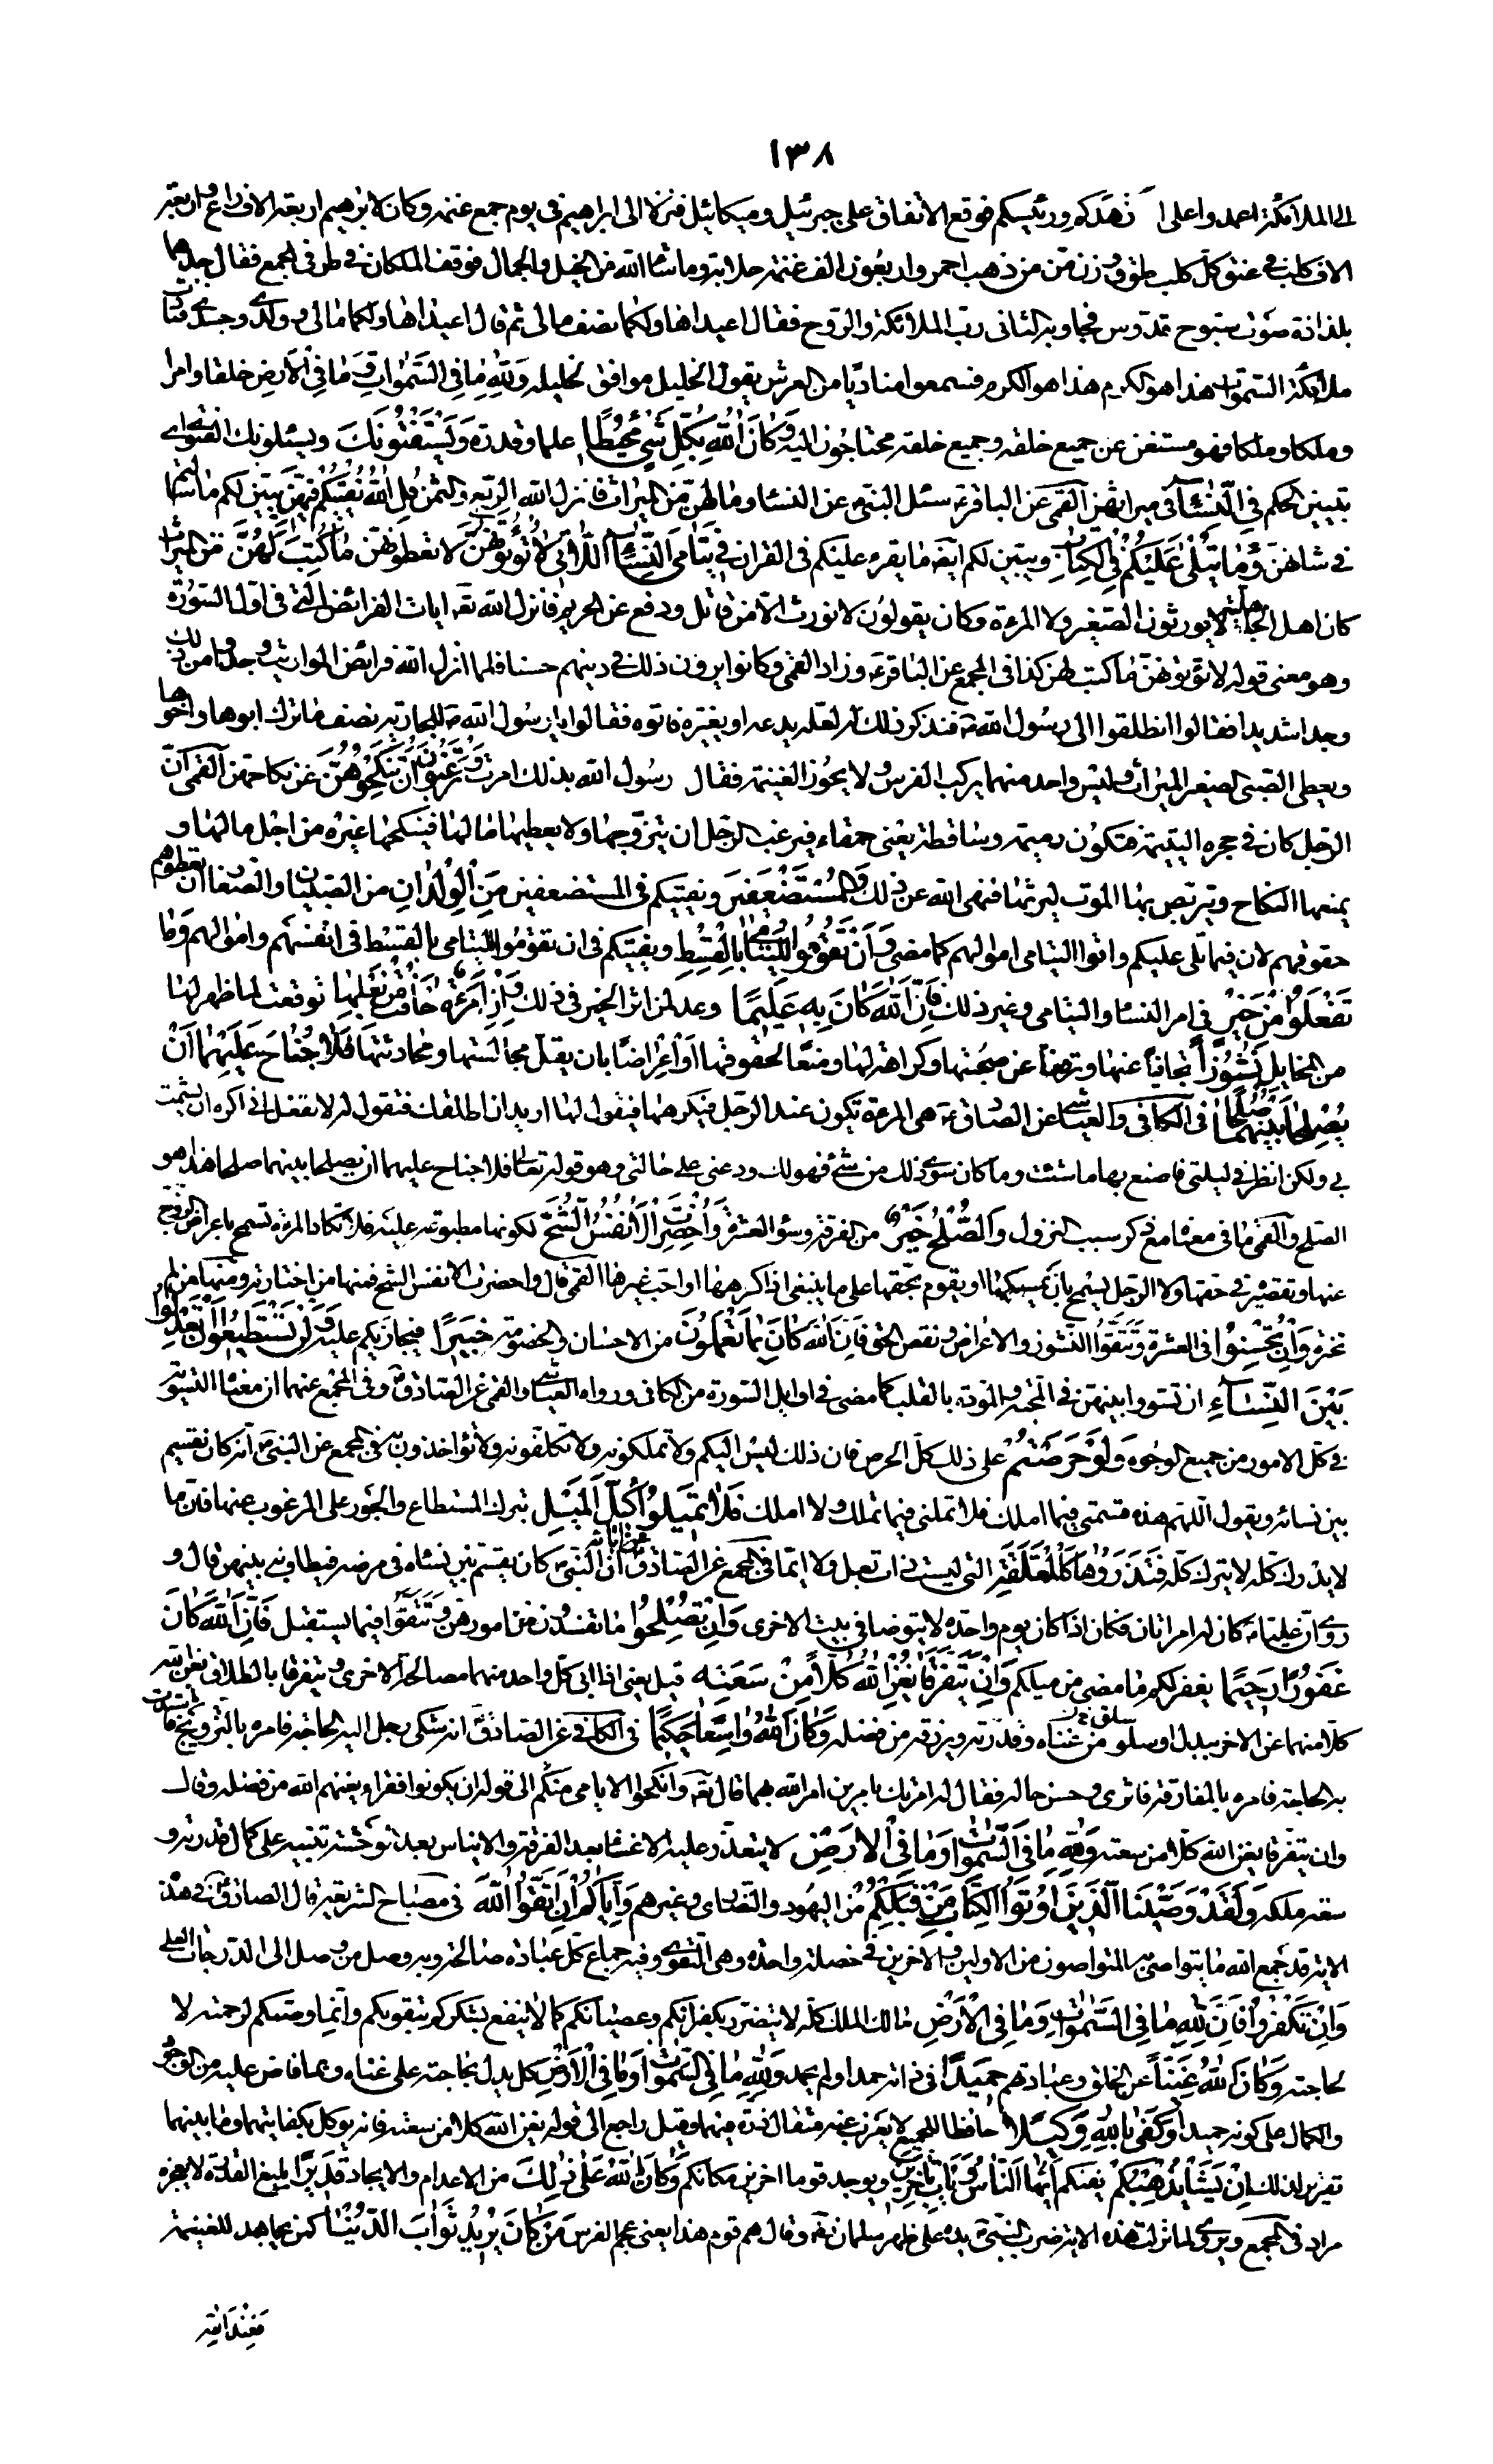 ١٣٨
الى الملائكة اعمدوا على ازهدكم ورئيسكم فوقع الاتفاق على جبرئيل وميكائيل فنزلا الى ابراهيم في يوم جمع غنمه وكان لابرهيم اربعة الاف راع واربعة
الاف كلب في عنق كل كلب طوق وزن من من ذهب احمر واربعون الف غنمة حلابة وما شاء الله من الخيل والجمال فوقف الملكان في طرفي الجمع فقال احدهما
بلذاذة صوت سبوح قدوس فجاوبه الثاني رب الملائكة والروح فقال اعيداها ولكما نصف مالي ثم قال اعيداها ولكما مالي وولدي وجسدي فنادت
ملائكة السموات هذا هو الكرم هذا هو الكرم فسمعوا مناديا من العرش يقول الخليل موافق لخليله ولله ما في السموات وما في الارض خلقا وامرا
وملكا وملكا فهو مستغن عن جميع خلقه وجميع خلقه محتاجون اليه وكان الله بكل شيء محيطا علما وقدرة ويستفتونك ويسئلونك الفتوى اى
تبيين الحكم في النساء في ميراثهن القمى عن الباقر ع سئل النبي ص عن النساء وما لهن من الميراث فانزل الله الربع والثمن قل الله يفتيكم فيهن يبين لكم ما سئلتم
في شانهن وما يتلى عليكم في الكتاب ويبين لكم ايضا ما يقرء عليكم في القران في يتامى النساء اللاتي لا تؤتونهن لا تعطونهن ما كتب لهن من الميراث
كان اهل الجاهلية لا يورثون الصغير ولا المرءة وكان يقولون لا نورث الا من قاتل ودفع عن الحريم فانزل الله تع ايات الفرائض التي في اول السورة
وهو معنى قوله لا تؤتونهن ما كتب لهن كذا في المجمع عن الباقر ع وزاد القمى وكانوا يرون ذلك في دينهم حسنا فلما انزل الله فرائض المواريث وجدوا من ذلك
وجدا شديدا فقالوا انطلقوا الى رسول الله ص فنذكر ذلك له لعله يدعه او يغيره فاتوه فقالوا يا رسول الله ص للجارية نصف ما ترك ابوها واخوها
ويعطى الصبي الصغير الميراث وليس واحد منهما يركب الفرس ولا يحوز الغنيمة فقال رسول الله بذلك امرت وترغبون ان تنكحوهن عن نكاحهن القمى ان
الرجل كان في حجره اليتيمة فتكون دميمة وساقطة يعني حمقاء فيرغب الرجل ان يتزوجها ولا يعطيها مالها فينكحها غيره من اجل مالها و
يمنعها النكاح ويتربص بها الموت ليرثها فنهى الله عن ذلك والمستضعفين ويفتيكم في المستضعفين من الولدان من الصبيان الصغار ان تعطوهم
حقوقهم لان فيما يتلى عليكم واتوا اليتامى اموالهم كما مضى وان تقوموا لليتامى بالقسط ويفتيكم في ان تقوموا لليتامى بالقسط في انفسهم واموالهم وما
تفعلوا من خير في امر النساء واليتامى وغير ذلك فان الله كان به عليما وعد لمن اثر الخير في ذلك وان امرءة خافت من بعلها توقعت لما ظهر لها
من المخايل نشوزا تجافيا عنها وترفعا عن صحبتها وكراهة لها ومنعا لحقوقها او اعراضا بان يقل مجالستها ومحادثتها فلا جناح عليهما ان
يصلحا بينهما صلحا في الكافي والعياشي عن الصادق ع هي المرءة تكون عند الرجل فيكرهها فيقول لها اريد ان اطلقك فتقول له لا تفعل اني اكره ان يشمت
بي ولكن انظر في ليلتي فاصنع بها ما شئت وما كان سوى ذلك من شيء فهو لك ودعني على حالتي وهو قوله تعالى فلا جناح عليهما ان يصلحا بينهما صلحا هذا هو
الصلح والقمى ما في معناه مع ذكر سبب النزول والصلح خير من الفرقة وسوء العشرة واحضرت الانفس الشح لكونها مطبوعة عليه فلا تكاد المرءة تسمح باعراض الزوج
عنها وتقصيره في حقها ولا الرجل يسمح بان يمسكها او يقوم بحقها على ما ينبغي اذا كرهها او احب غيرها القمى قال واحضرت الانفس الشح فمنها من اختارته ومنها من لم
تختره وان تحسنوا في العشرة وتتقوا النشوز والاعراض ونقص الحق فان الله كان بما تعملون من الاحسان والخصومة خبيرا فيجازيكم عليه ولن تستطيعوا ان تعدلوا
بين النساء ان تسووا بينهن في المحبة والمودة بالقلب كما مضى في اوايل السورة من الكافي ورواه العياشي والقمى عن الصادق ع وفي المجمع عنهما ان معناه التسوية
في كل الامور من جميع الوجوه ولو حرصتم على ذلك كل الحرص فان ذلك ليس اليكم ولا تملكونه ولا تكلفونه ولا تؤاخذون به في المجمع عن النبي ص انه كان يقسم
بين نسائه ويقول اللهم هذه قسمتي فيما املك فلا تلمني فيما تملك ولا املك فلا تميلوا كل الميل بترك المستطاع والجور على المرغوب عنها فان ما
لا يدرك كله لا يترك كله فتذروها كالمعلقة التي ليست ذات بعل ولا ايما في المجمع عن الصادق عن ابائه ع ان النبي ص كان يقسم بين نسائه في مرضه فيطاف به بينهن قال و
روي ان عليا ع كان له امراتان فكان اذا كان يوم واحدة لا يتوضا في بيت الاخرى وان تصلحوا ما تفسدون من امورهن وتتقوا فيما يستقبل فان الله كان
غفورا رحيما يغفر لكم ما مضى من ميلكم وان يتفرقا يغن الله كلا من سعته قيل يعني اذا ابى كل واحد منهما مصالحة الاخرى ويتفرقا بالطلاق يغن الله
كلا منهما عن الاخر ببدل او سلو من غناه وقدرته ويرزقه من فضله وكان الله واسعا حكيما في الكافي عن الصادق ع انه شكى رجل اليه الحاجة فامره بالتزويج فاشتدت
به الحاجة فامره بالمفارقة فاثرى وحسن حاله فقال له امرتك بامرين امر الله بهما قال تع وانكحوا الايامى منكم الى قوله ان يكونوا فقراء يغنهم الله من فضله وقال
وان يتفرقا يغن الله كلا من سعته ولله ما في السموات وما في الارض لا يتعذر عليه الاغناء بعد الفرقة والايناس بعد الوحشة تنبيه على كمال قدرته و
سعة ملكه ولقد وصينا الذين اوتوا الكتاب من قبلكم من اليهود والنصارى وغيرهم واياكم ان اتقوا الله في مصباح الشريعة قال الصادق ع في هذه
الاية قد جمع الله ما يتواصى به المتواصون من الاولين والاخرين في خصلة واحدة وهي التقوى وفيه جماع كل عبادة صالحة وبه وصل من وصل الى الدرجات العلى
وان تكفروا فان لله ما في السموات وما في الارض مالك الملك كله لا يتضرر بكفرانكم وعصيانكم كما لا ينفع بشكركم وتقويكم وانما وصيكم لرحمته لا
لحاجته وكان الله غنيا عن الخلق وعبادتهم حميدا في ذاته حمد او لم يحمد ولله ما في السموات وما في الارض كل يدل بحاجته على غناه وبما فاض عليه من الوجود
والكمال على كونه حميدا وكفى بالله وكيلا حافظا للجميع لا يعزب عنه مثقال ذرة فيهما وقيل راجع الى قوله يغن الله كلا من سعته فانه يوكل بكفايتهما وما بينهما
تقرير لذلك ان يشأ يذهبكم يفنكم ايها الناس ويات باخرين ويوجد قوما اخرين مكانكم وكان الله على ذلك من الاعدام والايجاد قديرا بليغ القدرة لا يعجزه
مراد في المجمع ويروى لما نزلت هذه الاية ضرب النبي ص يده على ظهر سلمان ره وقال هم قوم هذا يعني عجم الفرس من كان يريد ثواب الدنيا كمن يجاهد للغنيمة
فعند الله